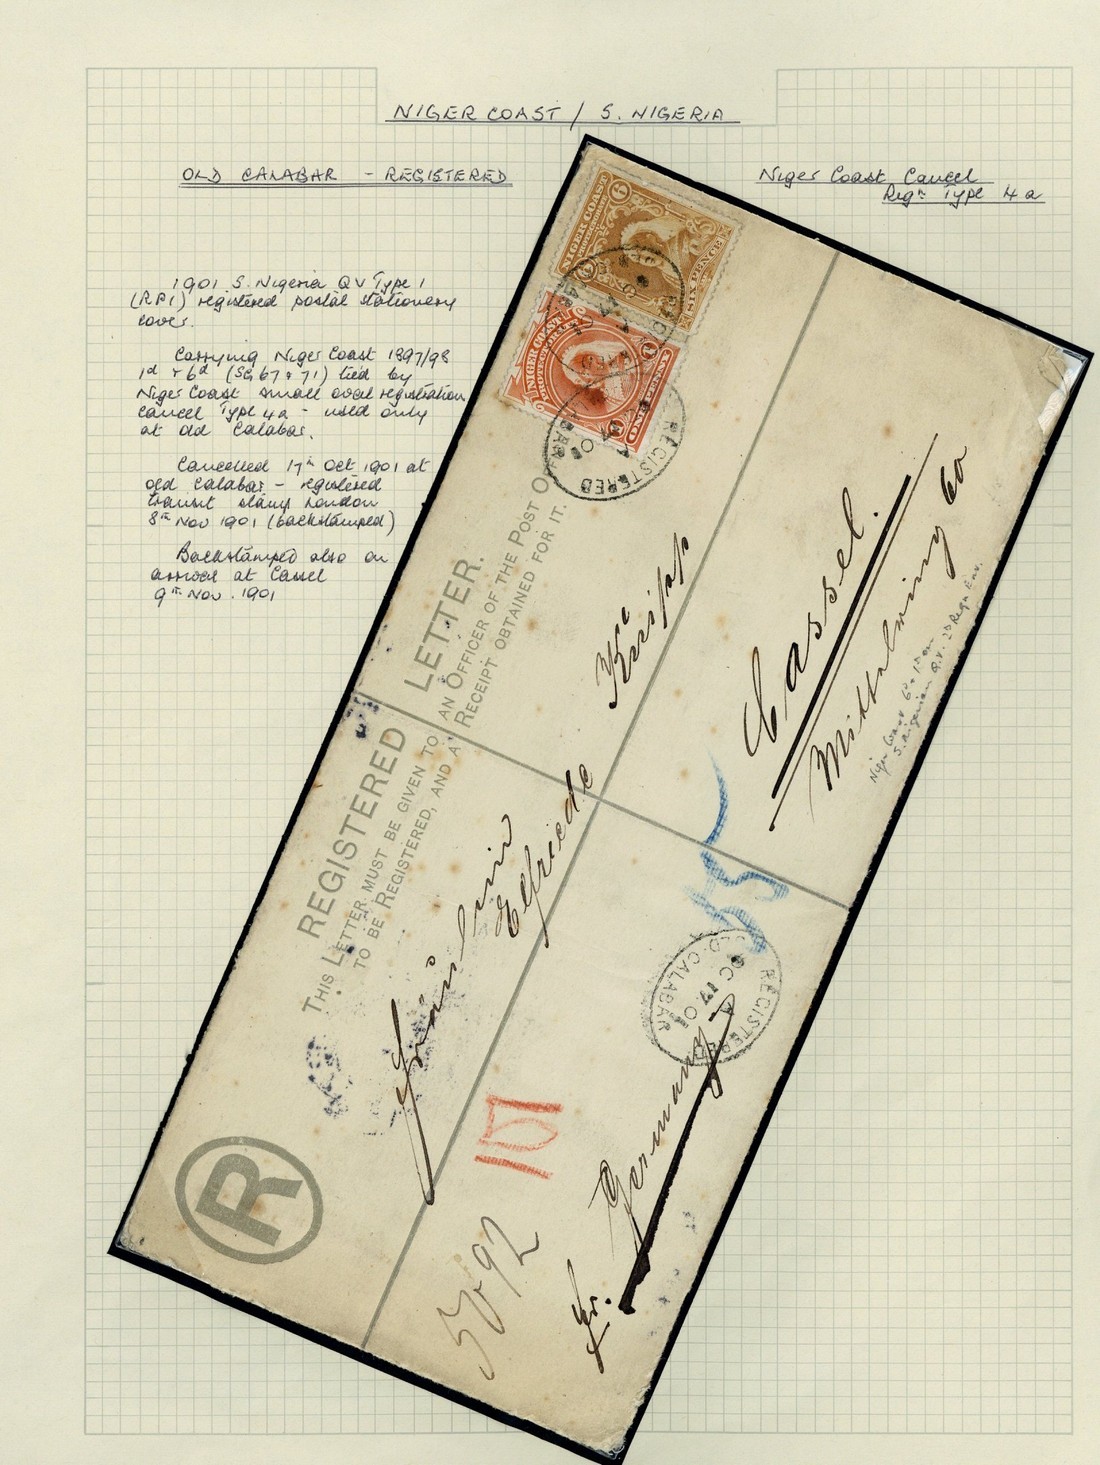 NIGER COAST / S. NIGERIA
OLD CALABAR - REGISTERED
Niger Coast Cancel
Regn Type 4a
1901 S. Nigeria QV Type 1
(RP1) registered postal stationery
cover.
Carrying Niger Coast 1897/98
1d + 6d (SG 67 + 71) tied by
Niger Coast small oval registration
cancel Type 4a - used only
at Old Calabar.
Cancelled 17th Oct 1901 at
Old Calabar - registered
transit stamp London
8th Nov 1901 (backstamped)
Backstamped also on
arrival at Cassel
9th Nov. 1901
NIGER COAST
PROTECTORATE
6
SIX PENCE
NIGER COAST
PROTECTORATE
1
ONE PENNY
REGISTERED
REGISTERED LETTER.
THIS LETTER MUST BE GIVEN TO AN OFFICER OF THE POST OF
TO BE REGISTERED, AND A RECEIPT OBTAINED FOR IT.
Fräulein
Elfriede
Cassel.
REGISTERED
OC 17 01
OLD-CALABAR
Germany
R
5092
Niger Coast 6d + 1d on
S. Nigerian Q.V. 2d Regn Env.